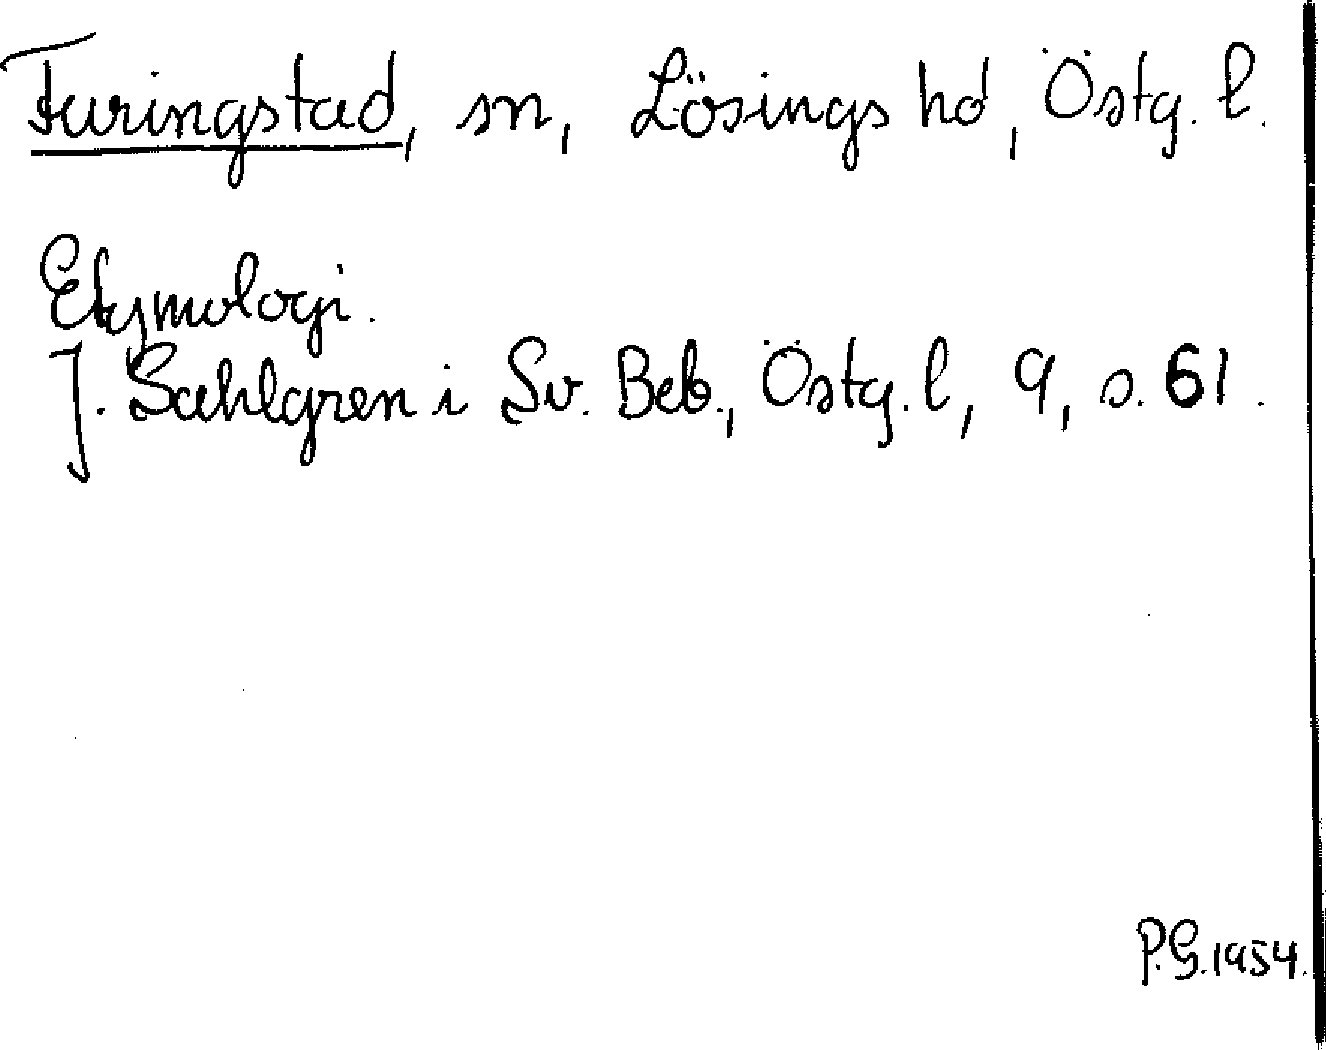 Furingstad, sn, Lösings hd, Östg. l.
Etymologi.
J. Sahlgren i Sv. Beb., Östg. l, 9, s. 61.
P.G. 1954.